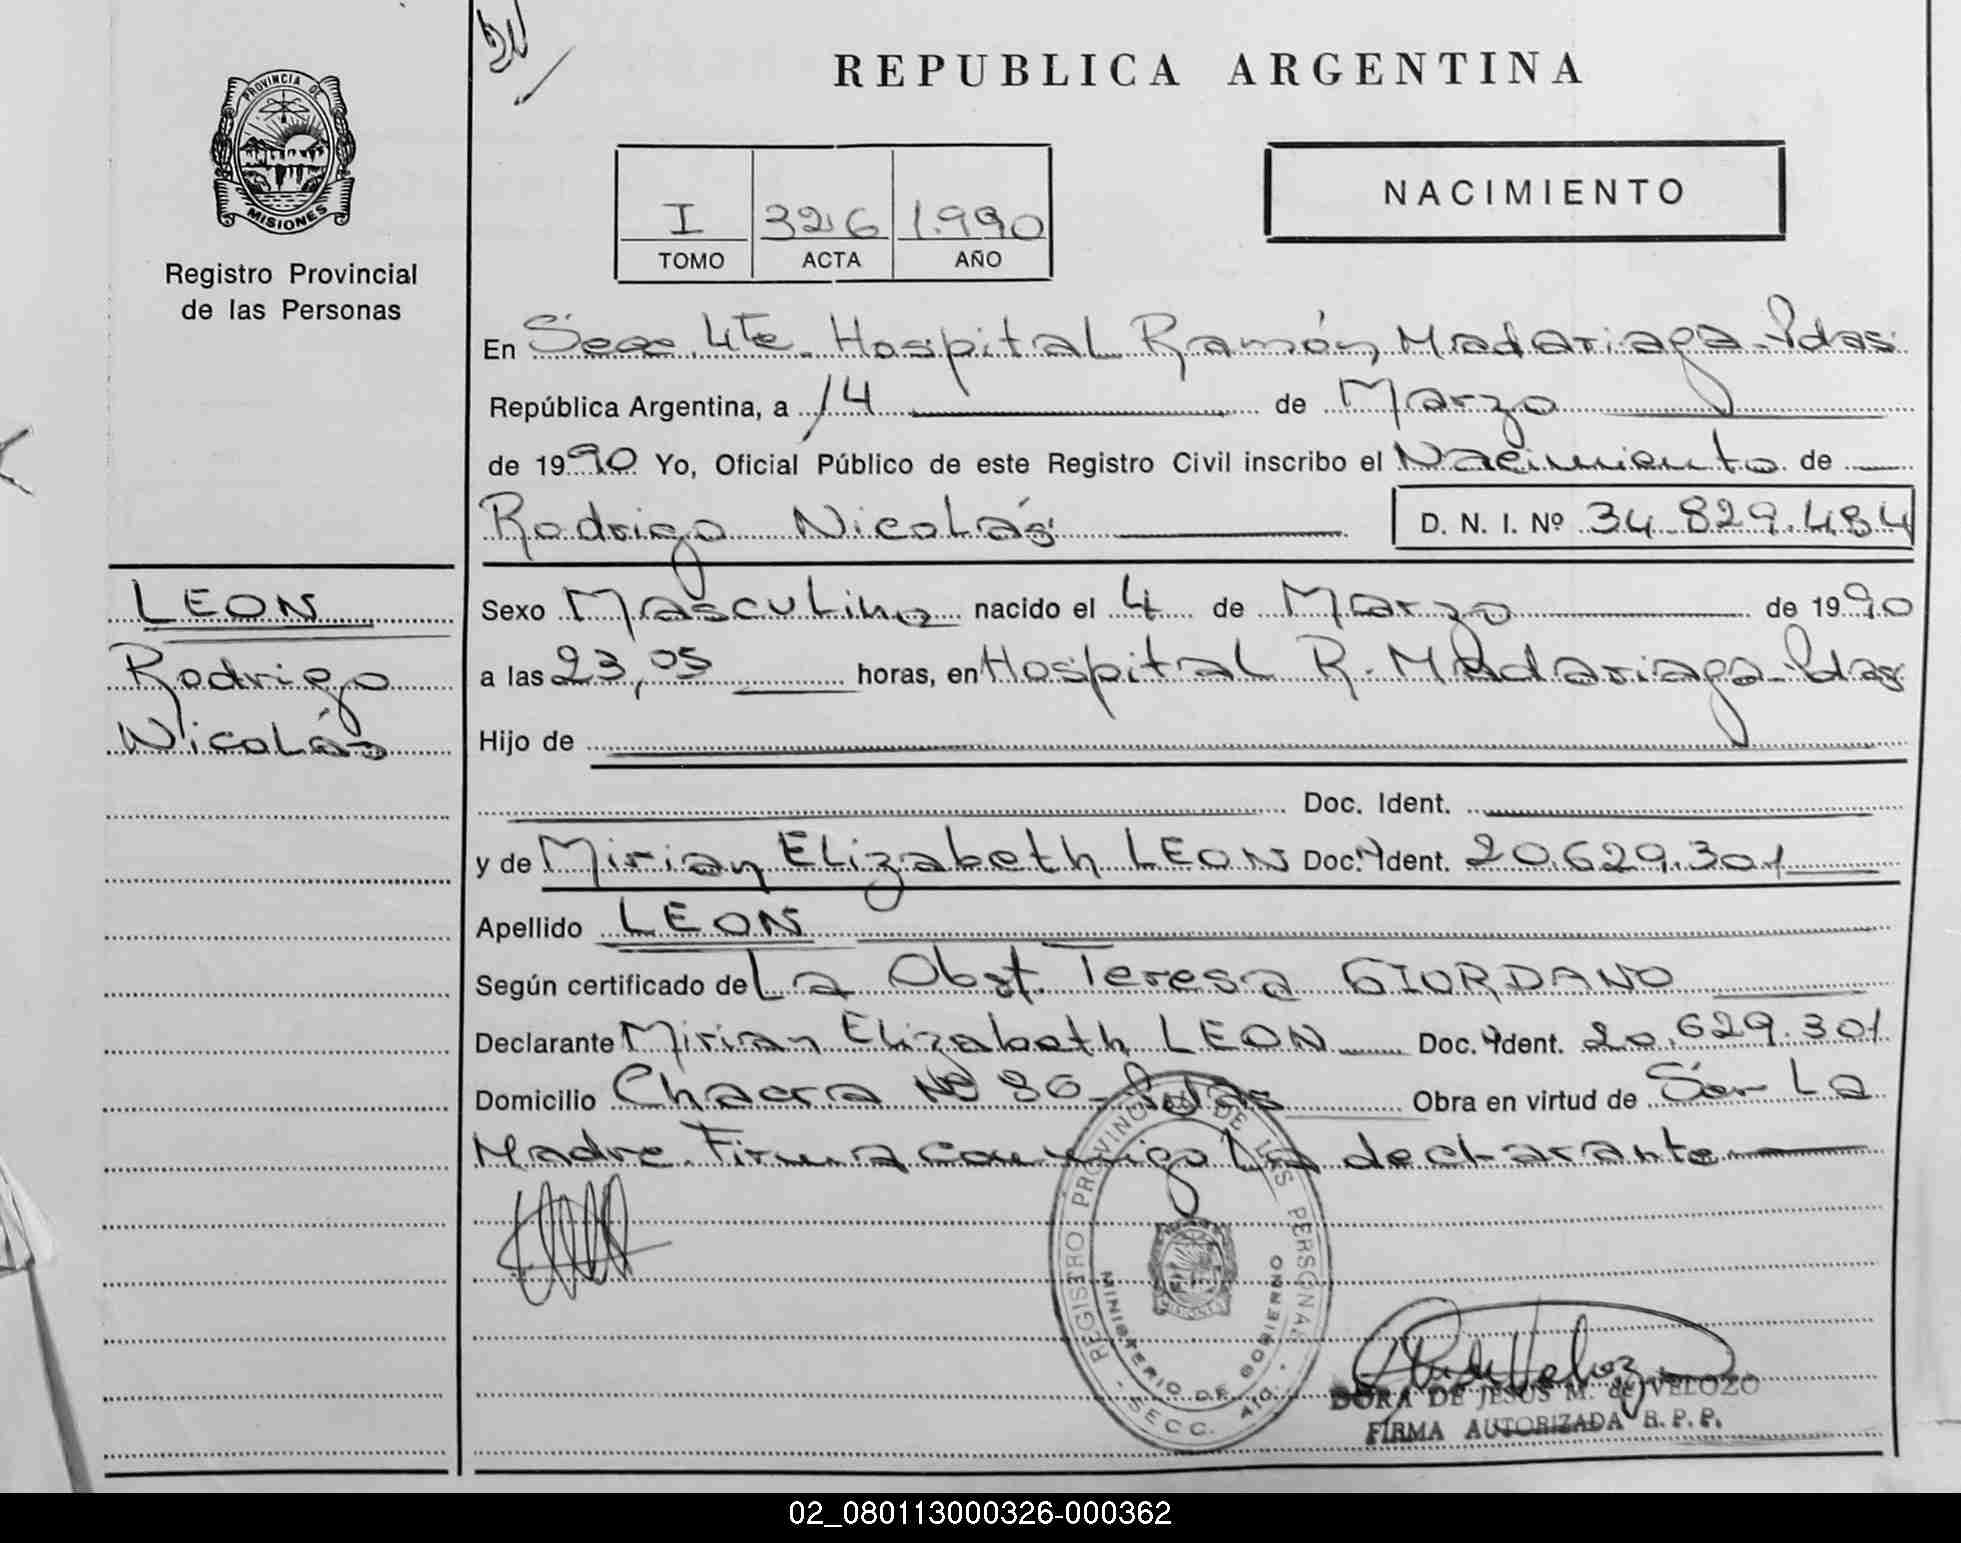 REPUBLICA ARGENTINA
PROVINCIA DE
MISIONES
Registro Provincial
de las Personas
I 326 1.990
TOMO ACTA AÑO
NACIMIENTO
En Secc. 4ta. Hospital Ramón Madariaga-Pdas
República Argentina, a 14 de Marzo
de 1990 Yo, Oficial Público de este Registro Civil inscribo el Nacimiento de
Rodrigo Nicolás D. N. I. Nº 34.829.484
LEON
Rodrigo
Nicolás
Sexo Masculino nacido el 4 de Marzo de 1990
a las 23,05 horas, en Hospital R. Madariaga-Pdas
Hijo de
Doc. Ident.
y de Mirian Elizabeth LEON Doc. Ident. 20.629.301
Apellido LEON
Según certificado de La Obst. Teresa GIORDANO
Declarante Mirian Elizabeth LEON Doc. Ident. 20.629.301
Domicilio Chacra Nº 36-Pdas Obra en virtud de Ser La
Madre. Firma conmigo La declarante
REGISTRO PROVINCIAL DE LAS PERSONAS
MINISTERIO DE GOBIERNO
SECC. 4ta.
DORA DE JESUS M. de VELOZO
FIRMA AUTORIZADA R. P. P.
02_080113000326-000362